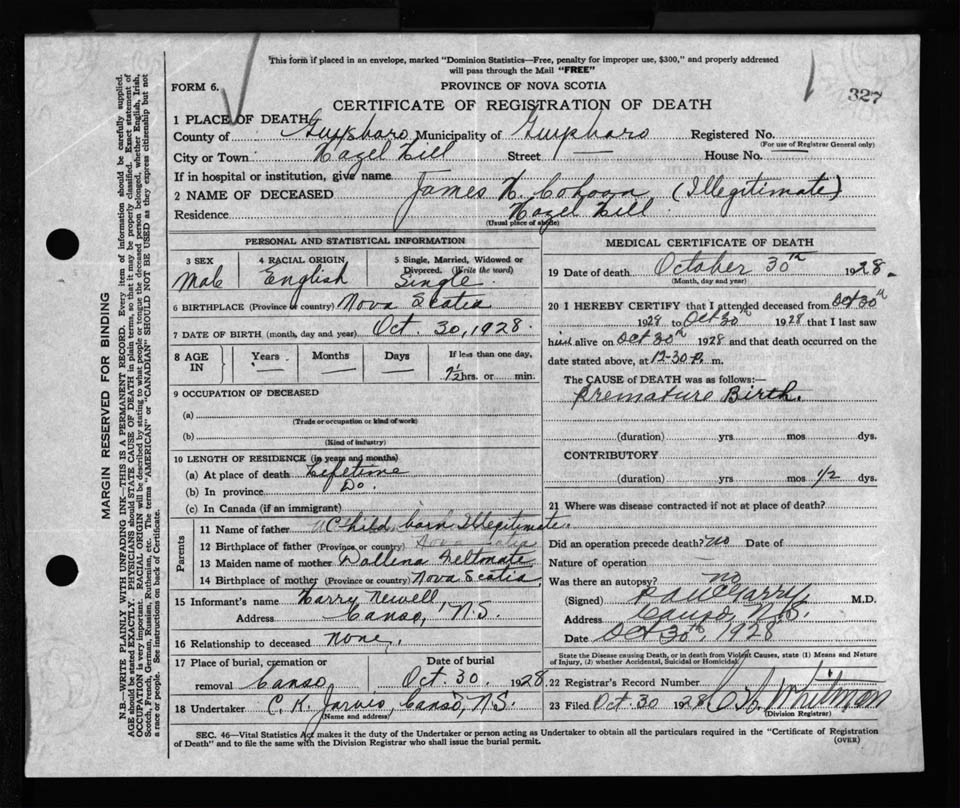 This form if placed in an envelope, marked "Dominion Statistics—Free, penalty for improper use, $300," and properly addressed
will pass through the Mail "FREE"
FORM 6.
PROVINCE OF NOVA SCOTIA
327
CERTIFICATE OF REGISTRATION OF DEATH
1 PLACE OF DEATH
County of Guysboro Municipality of Guysboro Registered No.
(For use of Registrar General only)
City or Town Hazel Hill Street — House No. —
If in hospital or institution, give name
2 NAME OF DECEASED James H. Cohoon (Illegitimate)
Residence Hazel Hill
(Usual place of abode)
MARGIN RESERVED FOR BINDING
N.B.—WRITE PLAINLY WITH UNFADING INK—THIS IS A PERMANENT RECORD. Every item of information should be carefully supplied.
AGE should be stated EXACTLY. PHYSICIANS should STATE CAUSE OF DEATH in plain terms, so that it may be properly classified. Exact statement of
OCCUPATION is very important. RACIAL ORIGIN will be described by stating to what people or tongue the deceased person belonged, whether English, Irish,
Scotch, French, German, Russian, Ruthenian, etc. The terms "AMERICAN" or "CANADIAN" SHOULD NOT BE USED as they express citizenship but not
a race or people. See instructions on back of Certificate.
PERSONAL AND STATISTICAL INFORMATION
3 SEX
Male
4 RACIAL ORIGIN
English
5 Single, Married, Widowed or
Divorced. (Write the word)
Single
6 BIRTHPLACE (Province or country) Nova Scotia
7 DATE OF BIRTH (month, day and year) Oct. 30, 1928.
8 AGE
IN
Years
—
Months
—
Days
—
If less than one day,
7½ hrs. or min.
9 OCCUPATION OF DECEASED
(a)
(Trade or occupation or kind of work)
(b)
(Kind of industry)
10 LENGTH OF RESIDENCE (in years and months)
(a) At place of death Lifetime
(b) In province Do.
(c) In Canada (if an immigrant)
Parents
11 Name of father Child born Illegitimate.
12 Birthplace of father (Province or country) Nova Scotia
13 Maiden name of mother
14 Birthplace of mother (Province or country) Nova Scotia
15 Informant's name Harry Newell
Address Canso, N.S.
16 Relationship to deceased None.
17 Place of burial, cremation or
removal Canso
Date of burial
Oct. 30. 1928.
18 Undertaker C. K. Jarvis, Canso, N.S.
(Name and address)
MEDICAL CERTIFICATE OF DEATH
19 Date of death October 30th 1928.
(Month, day and year)
20 I HEREBY CERTIFY that I attended deceased from Oct 30th
1928 to Oct 30th 1928 that I last saw
him alive on Oct 30th 1928 and that death occurred on the
date stated above, at 12-30 P. m.
The CAUSE OF DEATH was as follows:—
Premature Birth.
(duration) yrs mos dys.
CONTRIBUTORY
(duration) yrs mos 1/2 dys.
21 Where was disease contracted if not at place of death?
Did an operation precede death? No Date of
Nature of operation
Was there an autopsy? no
(Signed) M.D.
Address Canso, N.S.
Date Oct 30th 1928
State the Disease causing Death, or in death from Violent Causes, state (1) Means and Nature
of Injury, (2) whether Accidental, Suicidal or Homicidal.
22 Registrar's Record Number
23 Filed Oct 30 1928 Whitman
(Division Registrar)
SEC. 46—Vital Statistics Act makes it the duty of the Undertaker or person acting as Undertaker to obtain all the particulars required in the "Certificate of Registration
of Death" and to file the same with the Division Registrar who shall issue the burial permit.
(OVER)